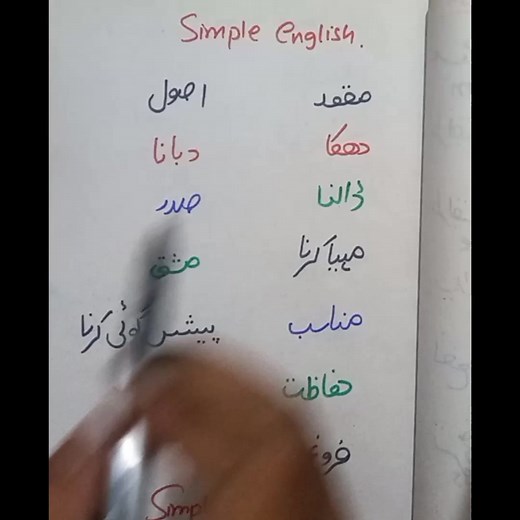 Simple English.
مقصد اصول
دھکا دبانا
ڈالنا صدر
مہیا کرنا مشق
مناسب پیشن گوئی کرنا
حفاظت
فروغ